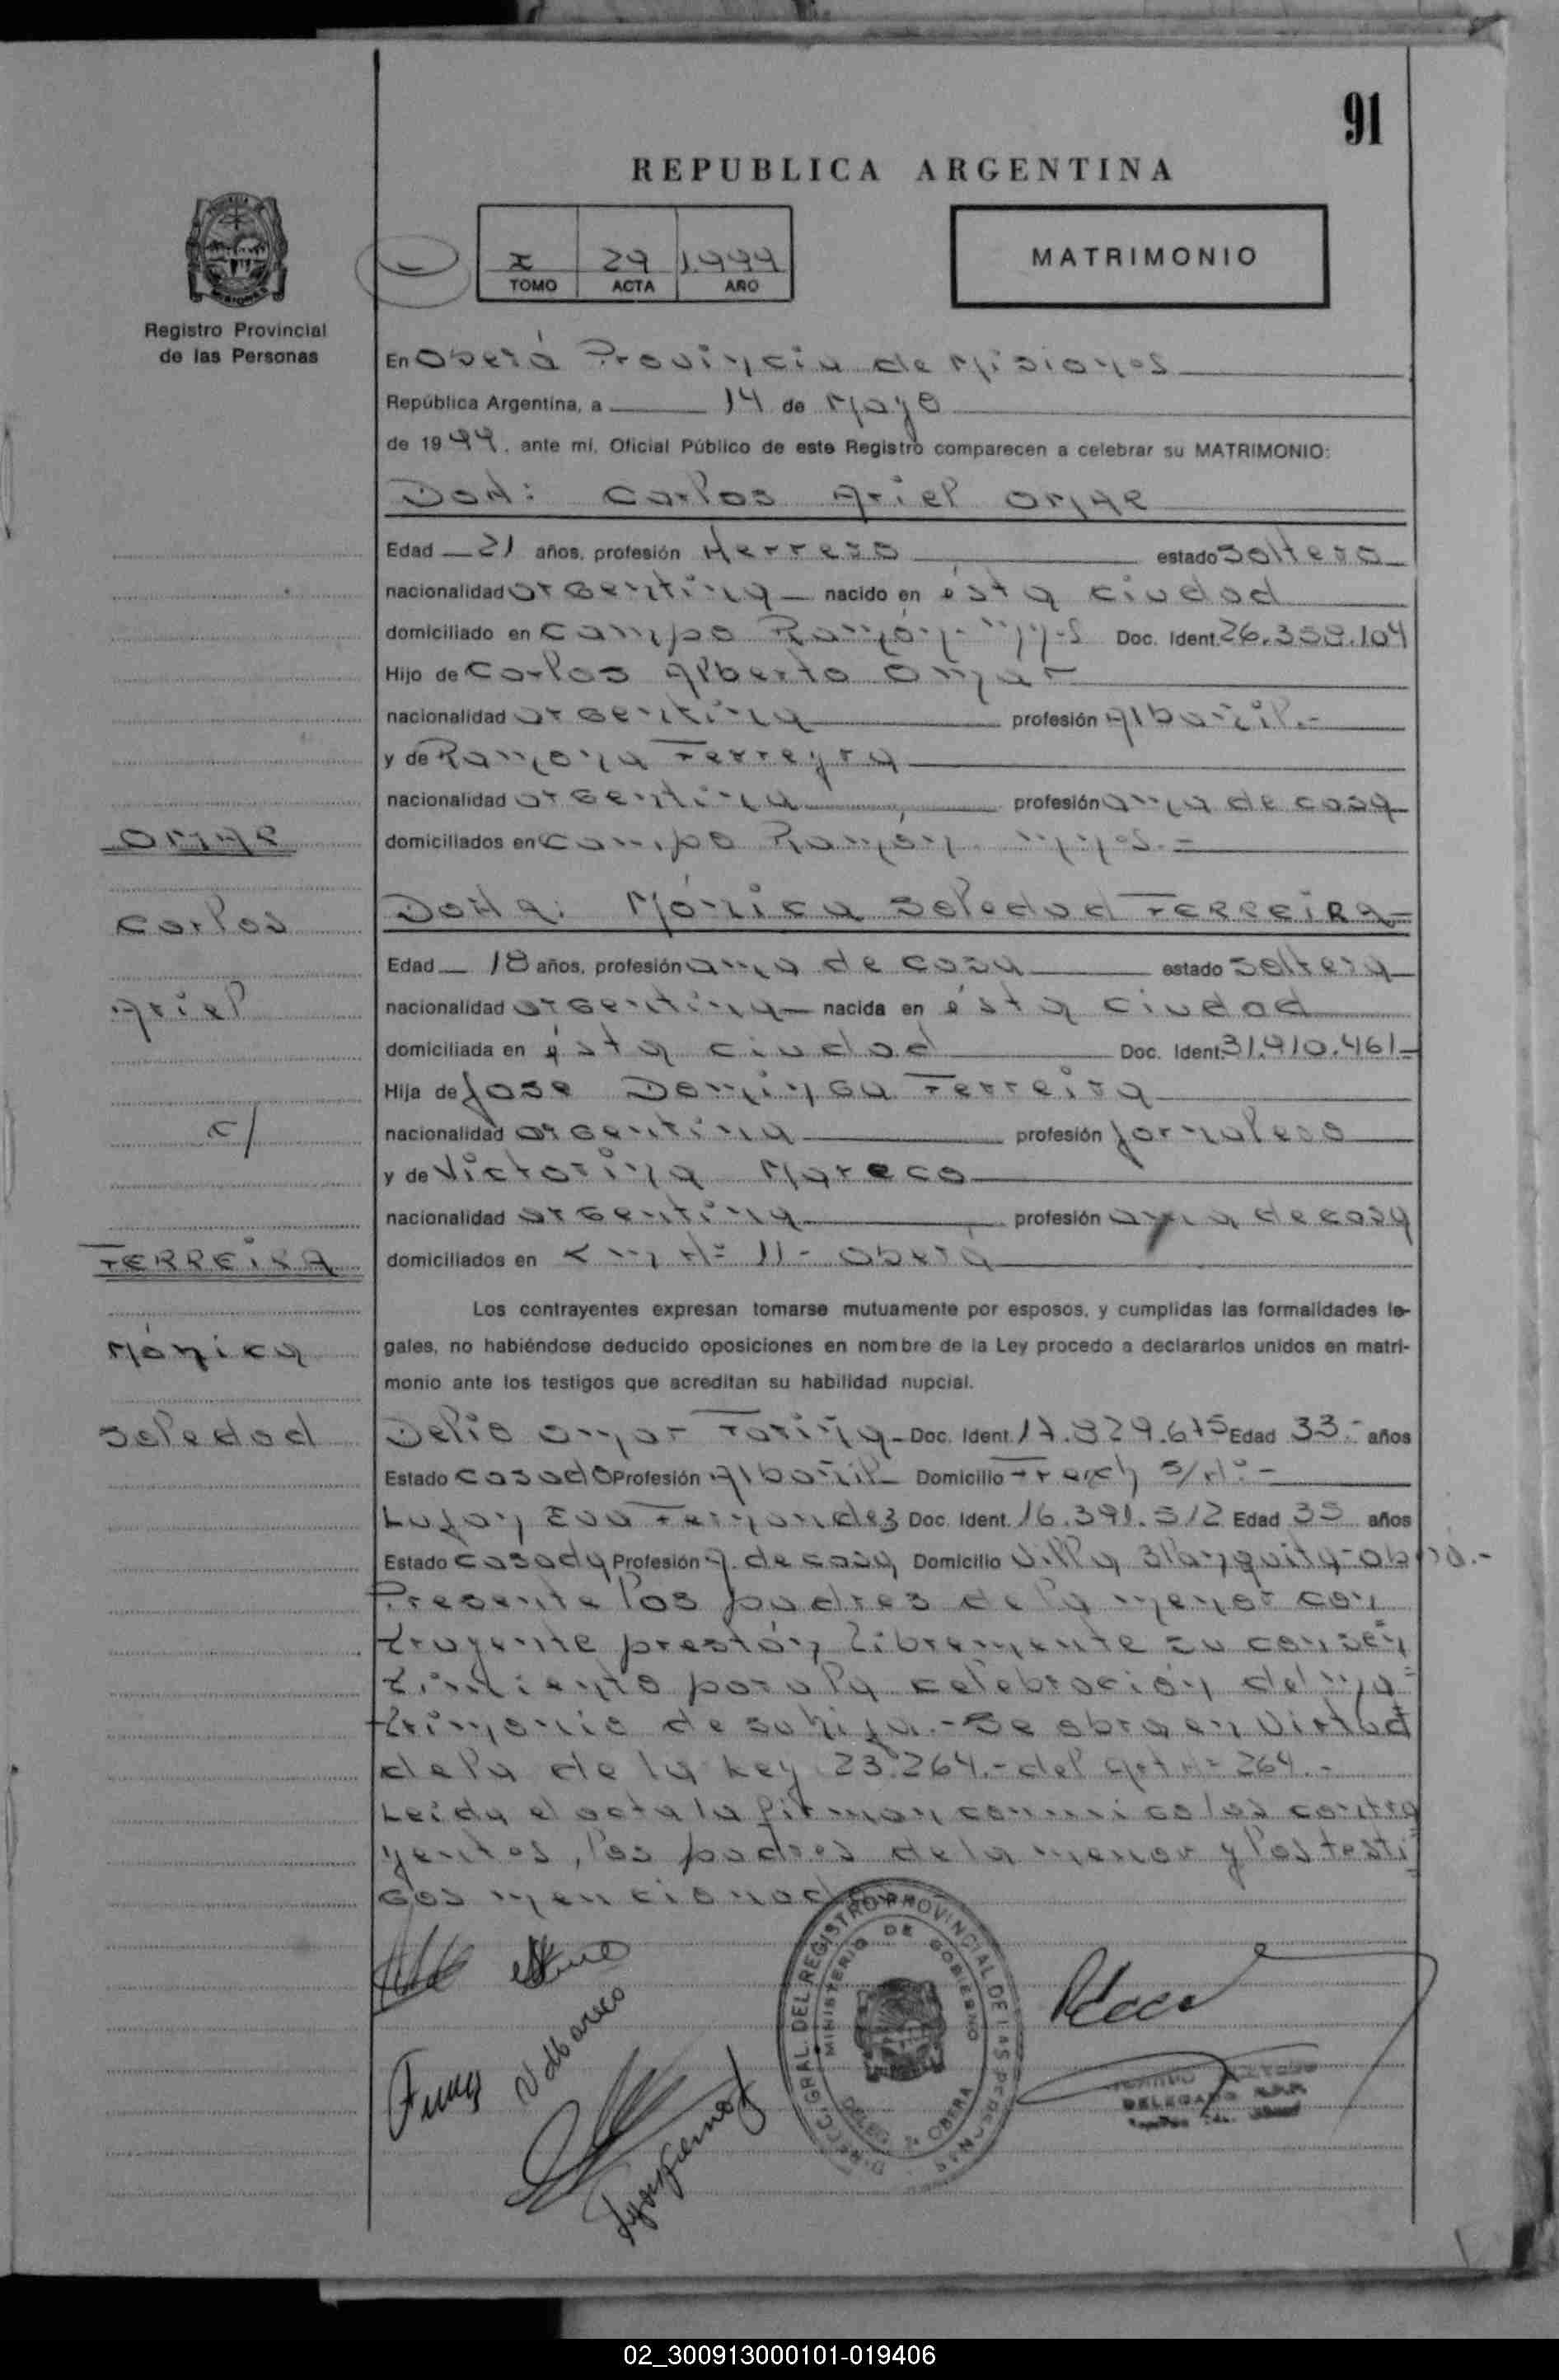 91
REPUBLICA ARGENTINA
I 29 1.999
TOMO ACTA AÑO
MATRIMONIO
Registro Provincial
de las Personas
En Oberá Provincia de Misiones
República Argentina, a 14 de Mayo
de 1999, ante mí, Oficial Público de este Registro comparecen a celebrar su MATRIMONIO:
Don: Carlos Ariel
Edad 21 años, profesión Herrero estado soltero
nacionalidad argentina nacido en ésta ciudad
domiciliado en Campo Ramón Doc. Ident. 26.359.104
Hijo de Carlos Alberto
nacionalidad argentina profesión Albañil.-
y de Ramona Ferreyra
nacionalidad argentina profesión ama de casa
domiciliados en Campo Ramón
Doña: Mónica Soledad FERREIRA
Edad 18 años, profesión ama de casa estado soltera
nacionalidad argentina nacida en ésta ciudad
domiciliada en ésta ciudad Doc. Ident. 31.910.461
Hija de Jose Dominga Ferreira
nacionalidad argentina profesión jornalero
y de Victorina Mareco
nacionalidad argentina profesión ama de casa
domiciliados en Km Nº 11 - Oberá
Carlos
Ariel
c/
FERREIRA
Mónica
Soledad
Los contrayentes expresan tomarse mutuamente por esposos, y cumplidas las formalidades le-
gales, no habiéndose deducido oposiciones en nombre de la Ley procedo a declararlos unidos en matri-
monio ante los testigos que acreditan su habilidad nupcial.
Delio Omar Fariña Doc. Ident. 17.829.675 Edad 33.- años
Estado casado Profesión Albañil Domicilio French s/Nº.-
Lujan Eva Fernandez Doc. Ident. 16.391.512 Edad 35 años
Estado casada Profesión a. de casa Domicilio Villa Blanquita-Oberá.-
Presente los padres de la menor con
trayente prestán libremente su consen
timiento para la celebración del ma
trimonio de su hija.- Se obra en virtud
dela de la Ley 23.264.- del art Nº 264.-
Leida el acta la firman conmigo los contra
yentes, los padres de la menor y los testi
gos mencionados
DIRECC. GRAL. DEL REGISTRO PROVINCIAL DE LAS PERSONAS
MINISTERIO DE GOBIERNO
OBERA
DELEGADO
02_300913000101-019406